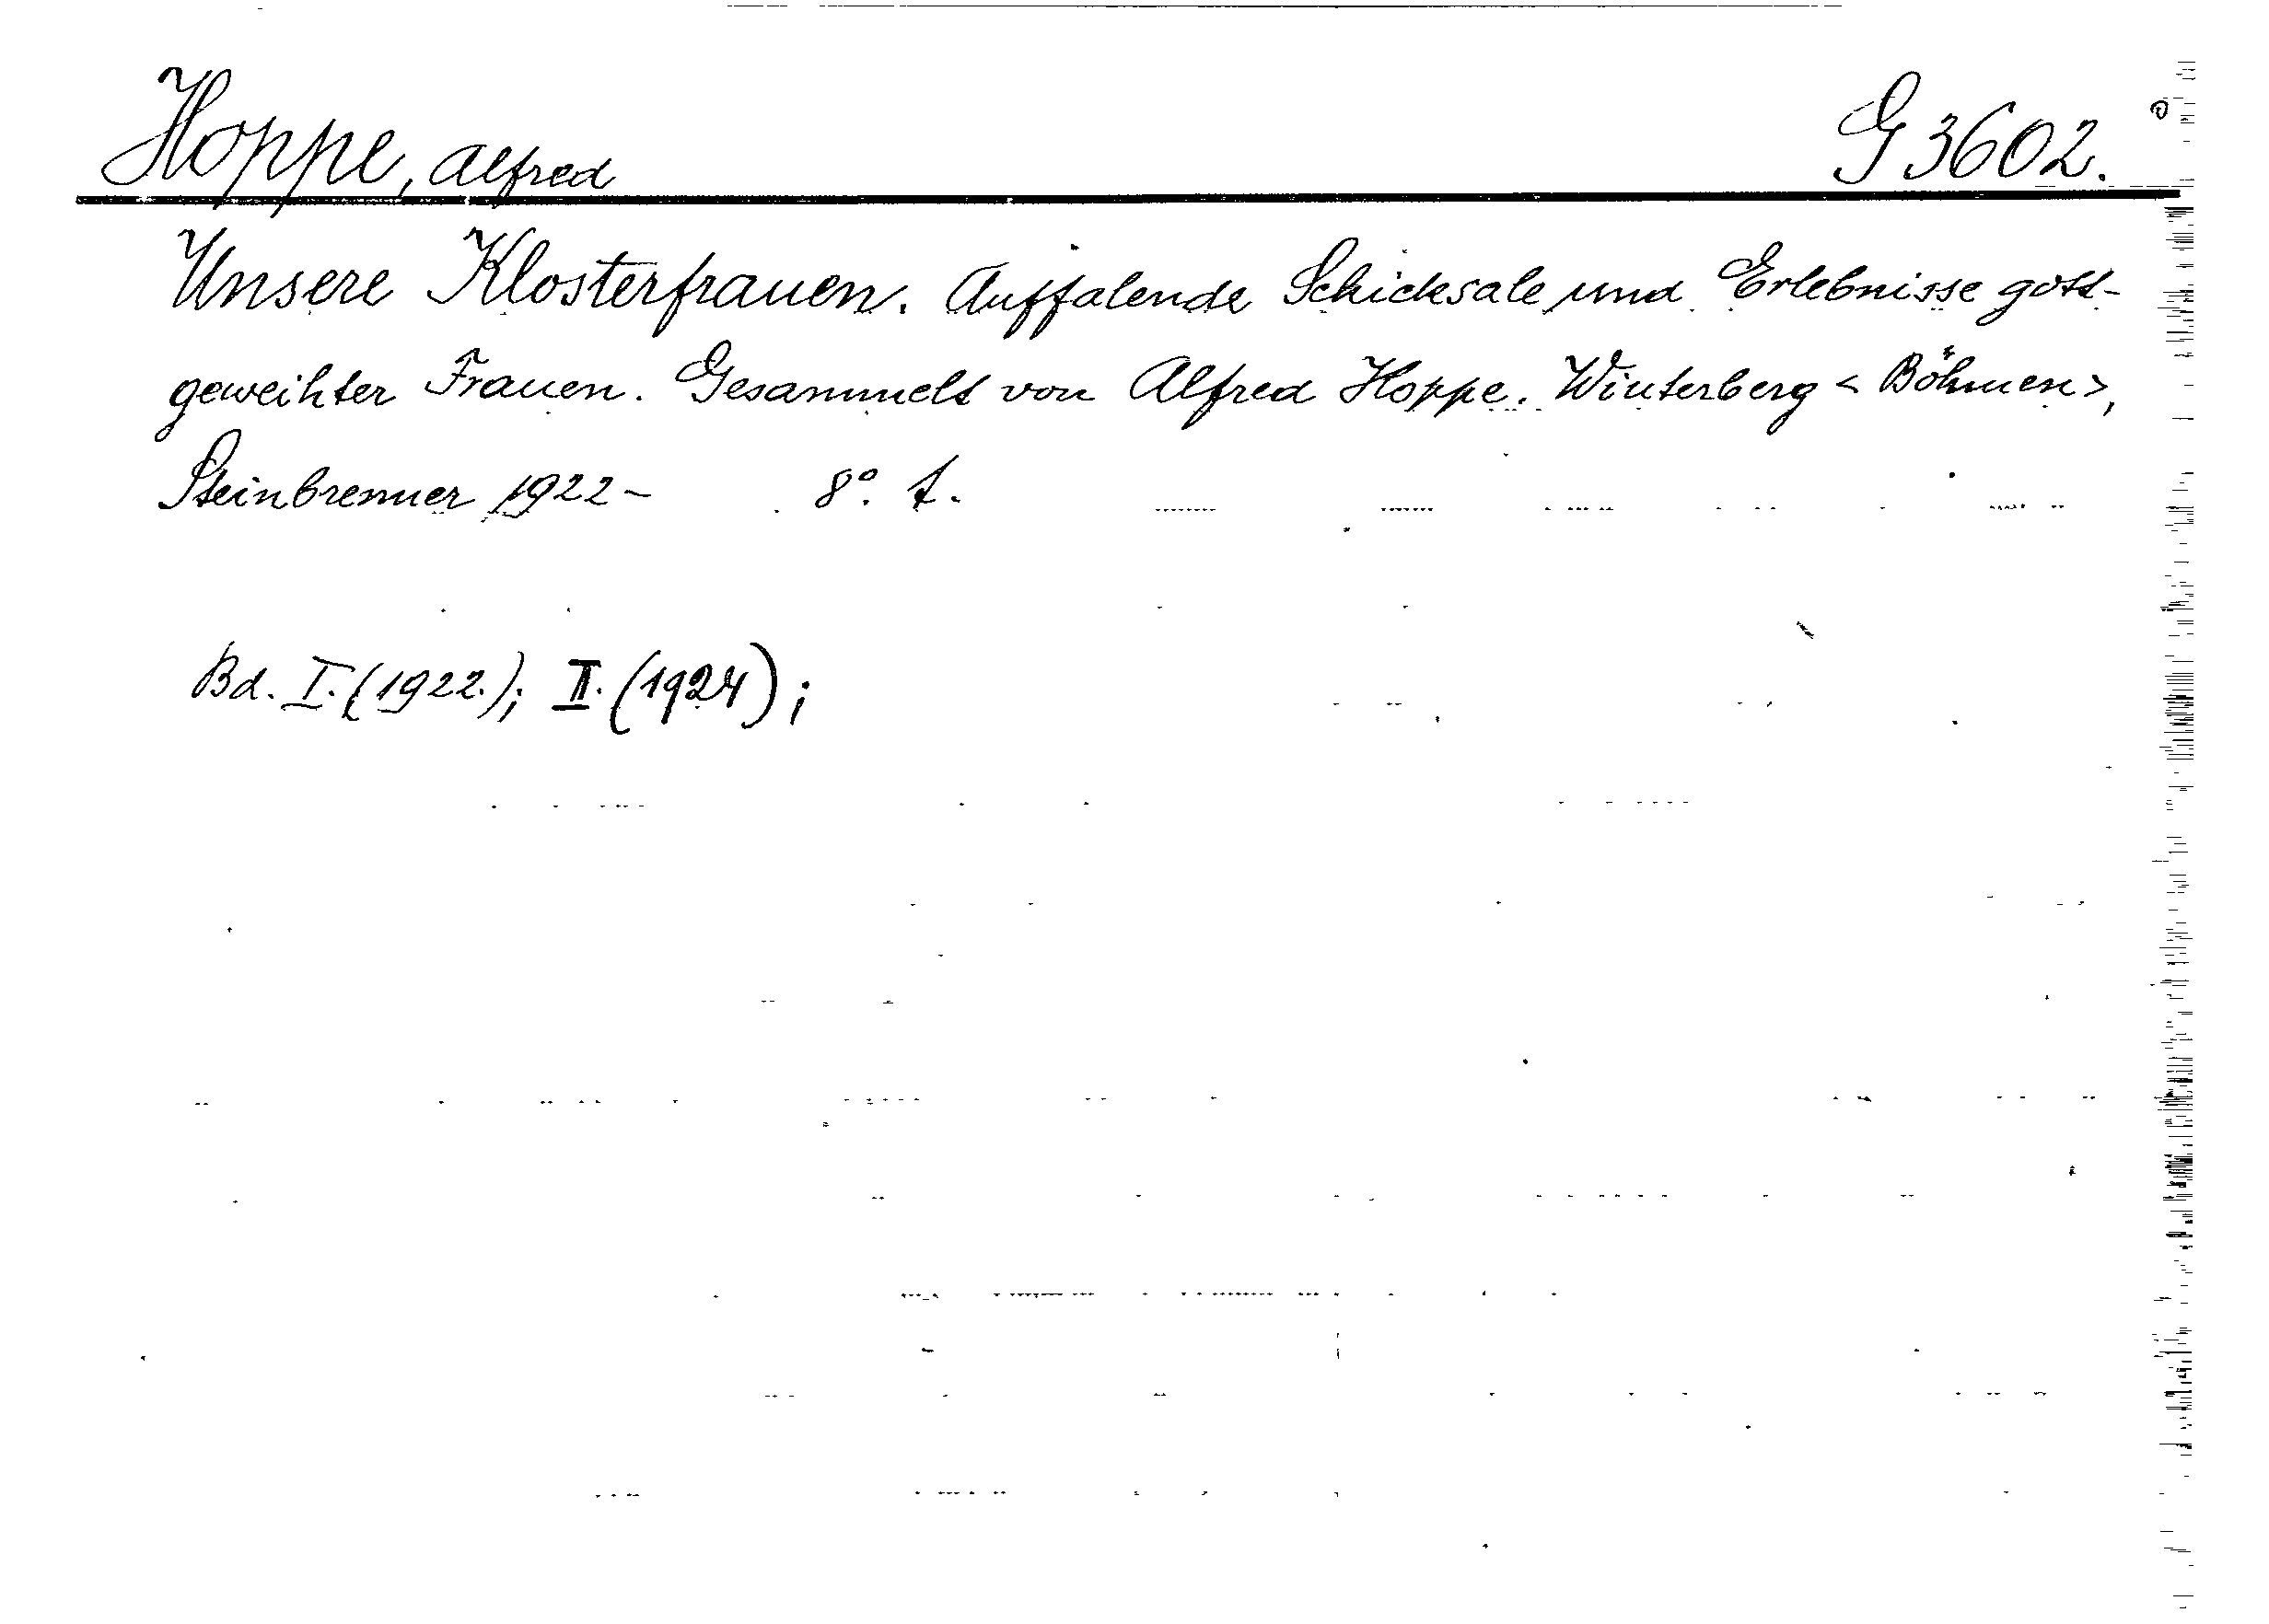 Hoppe, Alfred G 3602.
Unsere Klosterfrauen. Auffalende Schicksale und Erlebnisse gott-
geweihter Frauen. Gesammelt von Alfred Hoppe. Winterberg < Böhmen >,
Steinbrenner 1922- 8°. t.
Bd. I. (1922.); II. (1924);